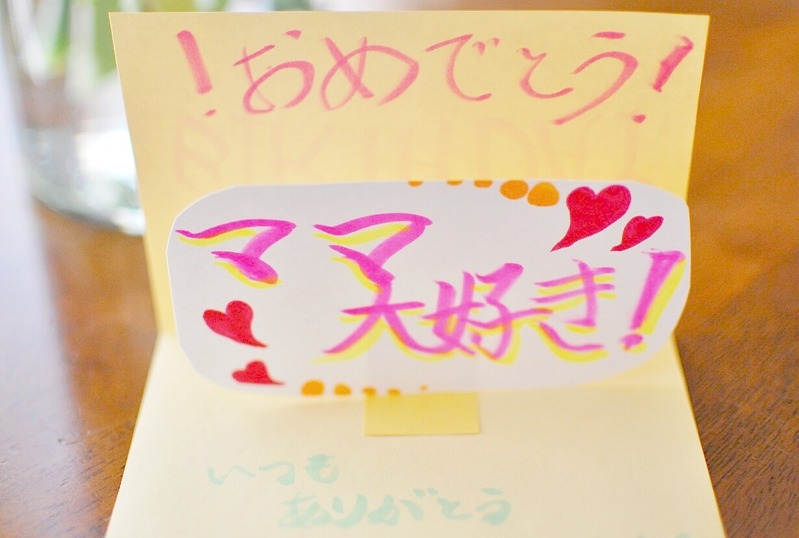 ！おめでとう！
ママ
大好き！
いつも
ありがとう